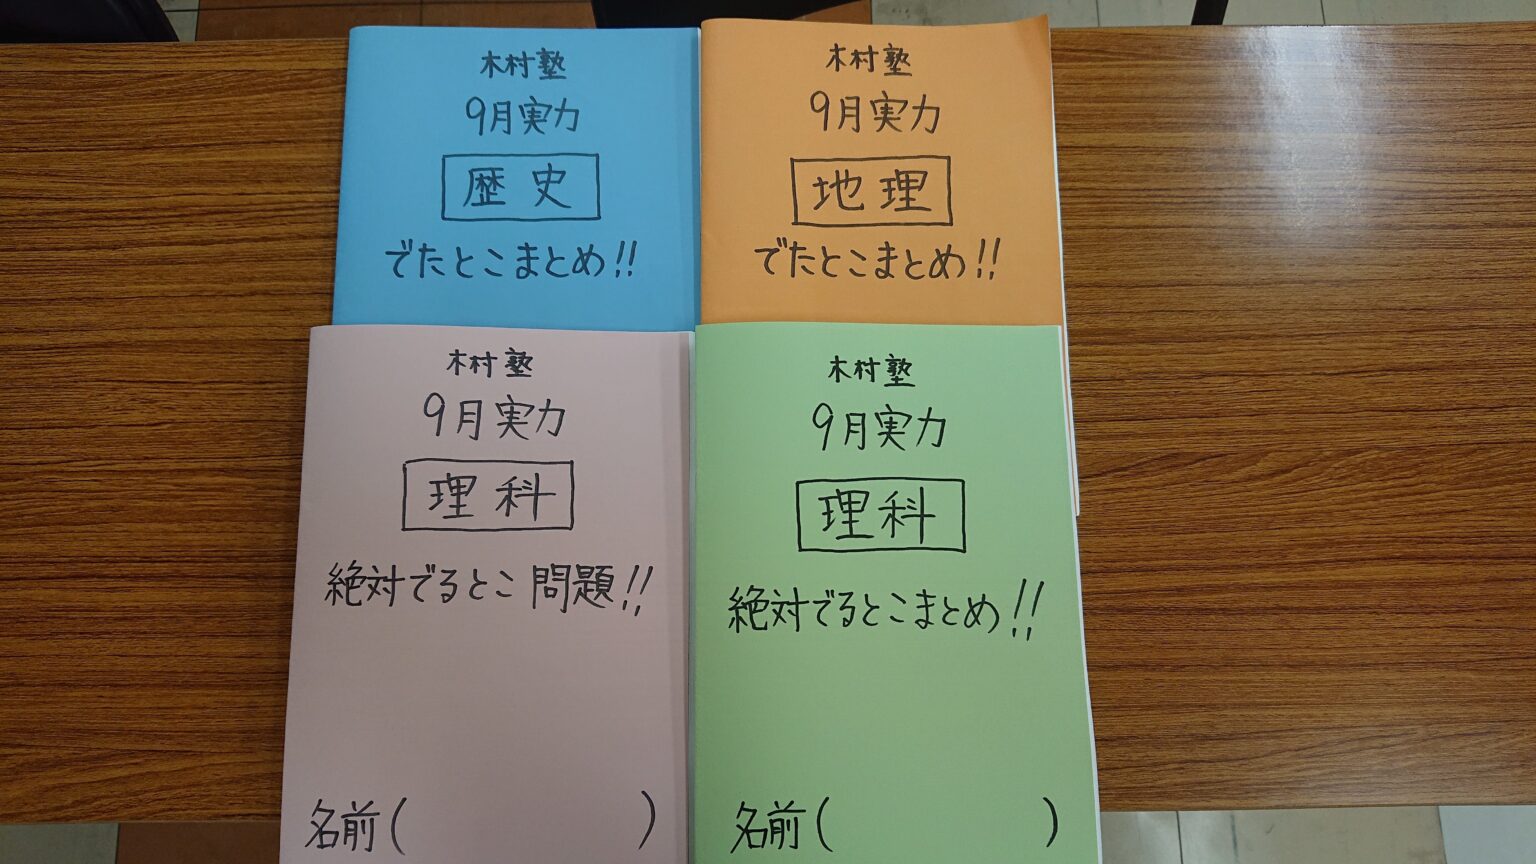 木村塾
9月実力
歴史
でたとこまとめ!!
木村塾
9月実力
地理
でたとこまとめ!!
木村塾
9月実力
理科
絶対でるとこ問題!!
名前(          )
木村塾
9月実力
理科
絶対でるとこまとめ!!
名前(          )